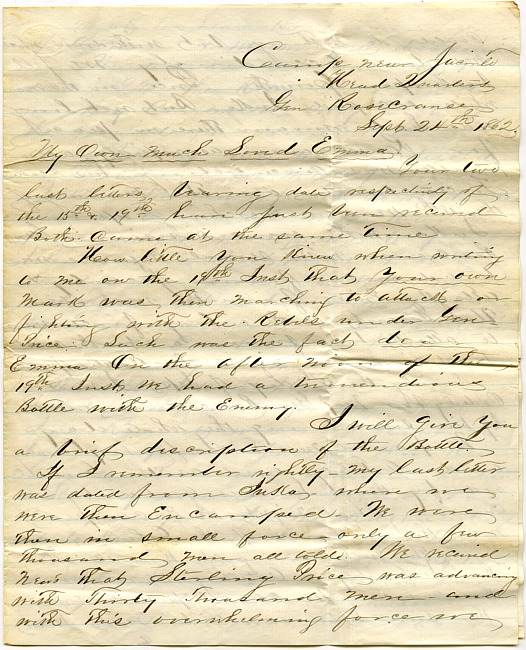 Camp near Jacinto
Head Quarters
Gen Rosecranse
Sept. 24th 1862
My Own much Loved Emma
Your two
last letters, bearing date respectively of
the 15th & 19th have just been received
Both came at the same time
How little you knew when writing
to me on the 19th Inst that your own
Mark was then marching to attack or
fighting with the Rebels under Gen
Price. Such was the fact dear
Emma On the after noon of the
19th Inst we had a tremendious
Battle with the Enemy.
I will give you
a brief discription of the Battle.
If I remember rightly my last letter
was dated from Iuka, where we
were then Encamped. We were
then in small force only a few
thousand men all told. We recieved
news that Sterling Price was advancing
with Thirty Thousand men and
with this overwhelming force we